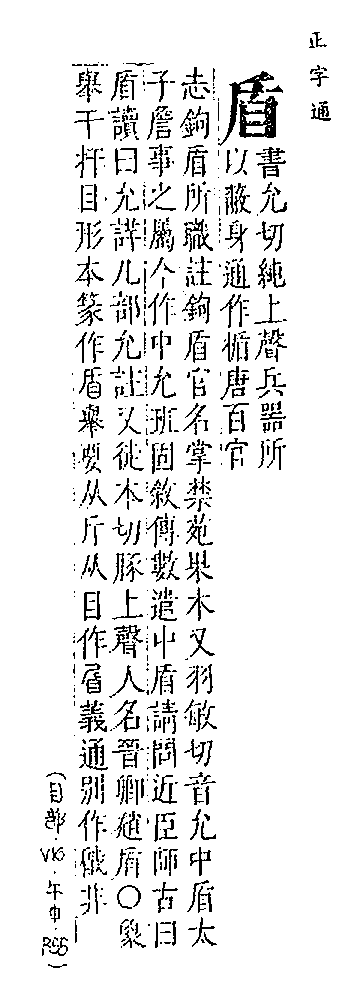 正字通
盾書允切純上聲兵器所
以蔽身通作楯唐百官
志鉤盾所職註鉤盾官名掌禁苑果木又羽敏切音允中盾太
子詹事之屬今作中允班固敘傳數遣中盾請問近臣師古曰
盾讀曰允詳儿部允註又徒本切豚上聲人名晉卿趙盾〇象
舉干扞目形本篆作盾舉要从斤从目作㫁義通別作瞂非
(目部·V16·午中·R55)